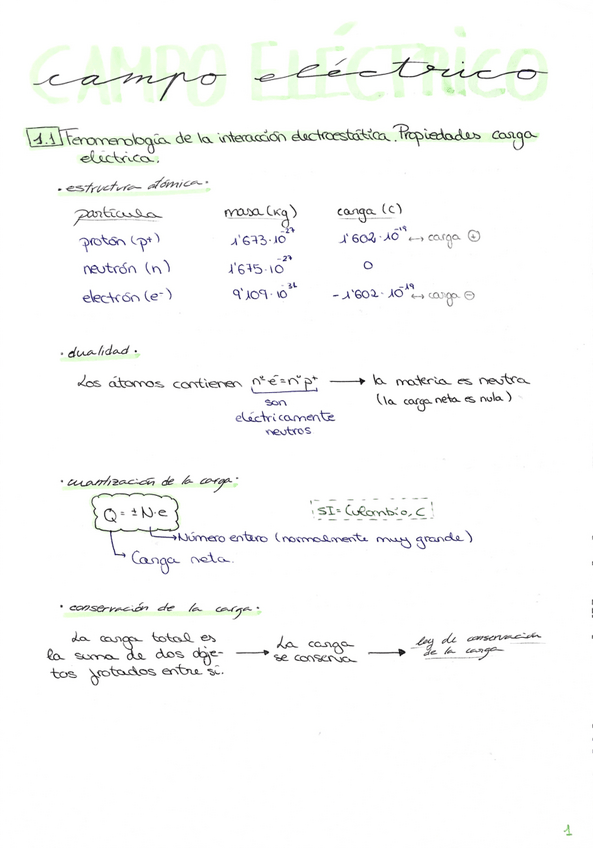 CAMPO ELÉCTRICO
campo eléctrico
1.1 Fenomenología de la interacción electroestática. Propiedades carga
eléctrica.
· estructura atómica·
partícula masa (kg) carga (C)
protón (p+) 1'673·10⁻²⁷ 1'602·10⁻¹⁹ ↔ carga ⊕
neutrón (n) 1'675·10⁻²⁷ 0
electrón (e-) 9'109·10⁻³¹ -1'602·10⁻¹⁹ ↔ carga ⊖
· dualidad·
Los átomos contienen nº e⁻ = nº p⁺ → la materia es neutra
son (la carga neta es nula)
eléctricamente
neutros
· cuantización de la carga:
Q = ± N·e SI = Culombio, C
→ Número entero (normalmente muy grande)
→ Carga neta.
· conservación de la carga:
La carga total es
la suma de dos obje- → La carga → ley de conservación
tos frotados entre sí. se conserva de la carga
1